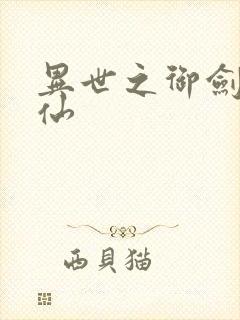 異世之御劍
仙
西貝猫